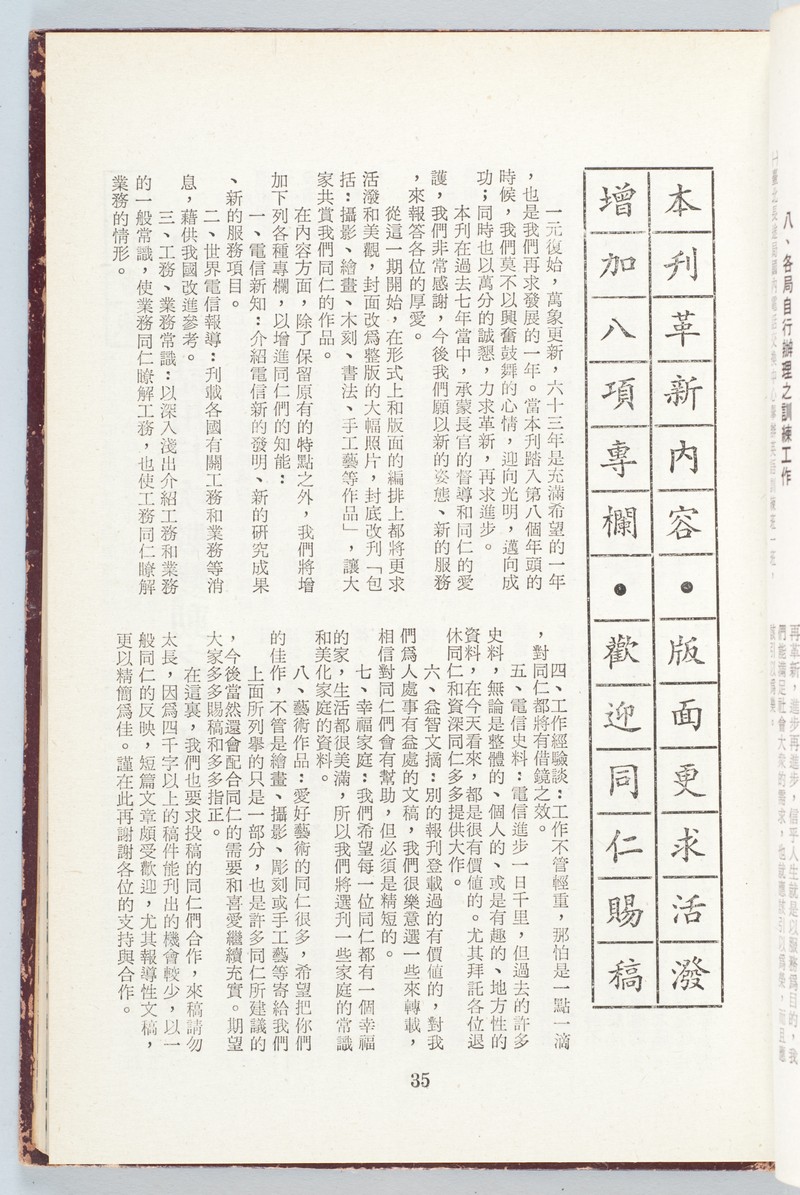 八、各局自行辦理之訓練工作
本刊革新內容•版面更求活潑
增加八項專欄•歡迎同仁賜稿
一元復始，萬象更新，六十三年是充滿希望的一年
，也是我們再求發展的一年。當本刊踏入第八個年頭的
時候，我們莫不以興奮鼓舞的心情，迎向光明，邁向成
功；同時也以萬分的誠懇，力求革新，再求進步。
本刊在過去七年當中，承蒙長官的督導和同仁的愛
護，我們非常感謝，今後我們願以新的姿態、新的服務
，來報答各位的厚愛。
從這一期開始，在形式上和版面的編排上都將更求
活潑和美觀，封面改爲整版的大幅照片，封底改刋「包
括：攝影、繪畫、木刻、書法、手工藝等作品」，讓大
家共賞我們同仁的作品。
在內容方面，除了保留原有的特點之外，我們將增
加下列各種專欄，以增進同仁們的知能：
一、電信新知：介紹電信新的發明、新的研究成果
、新的服務項目。
二、世界電信報導：刋載各國有關工務和業務等消
息，藉供我國改進參考。
三、工務、業務常識：以深入淺出介紹工務和業務
的一般常識，使業務同仁瞭解工務，也使工務同仁瞭解
業務的情形。
四、工作經驗談：工作不管輕重，那怕是一點一滴
，對同仁都將有借鏡之效。
五、電信史料：電信進步一日千里，但過去的許多
史料，無論是整體的、個人的、或是有趣的、地方性的
資料，在今天看來，都是很有價値的。尤其拜託各位退
休同仁和資深同仁多多提供大作。
六、益智文摘：別的報刋登載過的有價値的，對我
們爲人處事有益處的文稿，我們很樂意選一些來轉載，
相信對同仁們會有幫助，但必須是精短的。
七、幸福家庭：我們希望每一位同仁都有一個幸福
的家，生活都很美滿，所以我們將選刋一些家庭的常識
和美化家庭的資料。
八、藝術作品：愛好藝術的同仁很多，希望把你們
的佳作，不管是繪畫、攝影、彫刻或手工藝等寄給我們
上面所列舉的只是一部分，也是許多同仁所建議的
，今後當然還會配合同仁的需要和喜愛繼續充實。期望
大家多多賜稿和多多指正。
在這裏，我們也要求投稿的同仁們合作，來稿請勿
太長，因爲四千字以上的稿件能刋出的機會較少，以一
般同仁的反映，短篇文章頗受歡迎，尤其報導性文稿，
更以精簡爲佳。謹在此再謝謝各位的支持與合作。
35